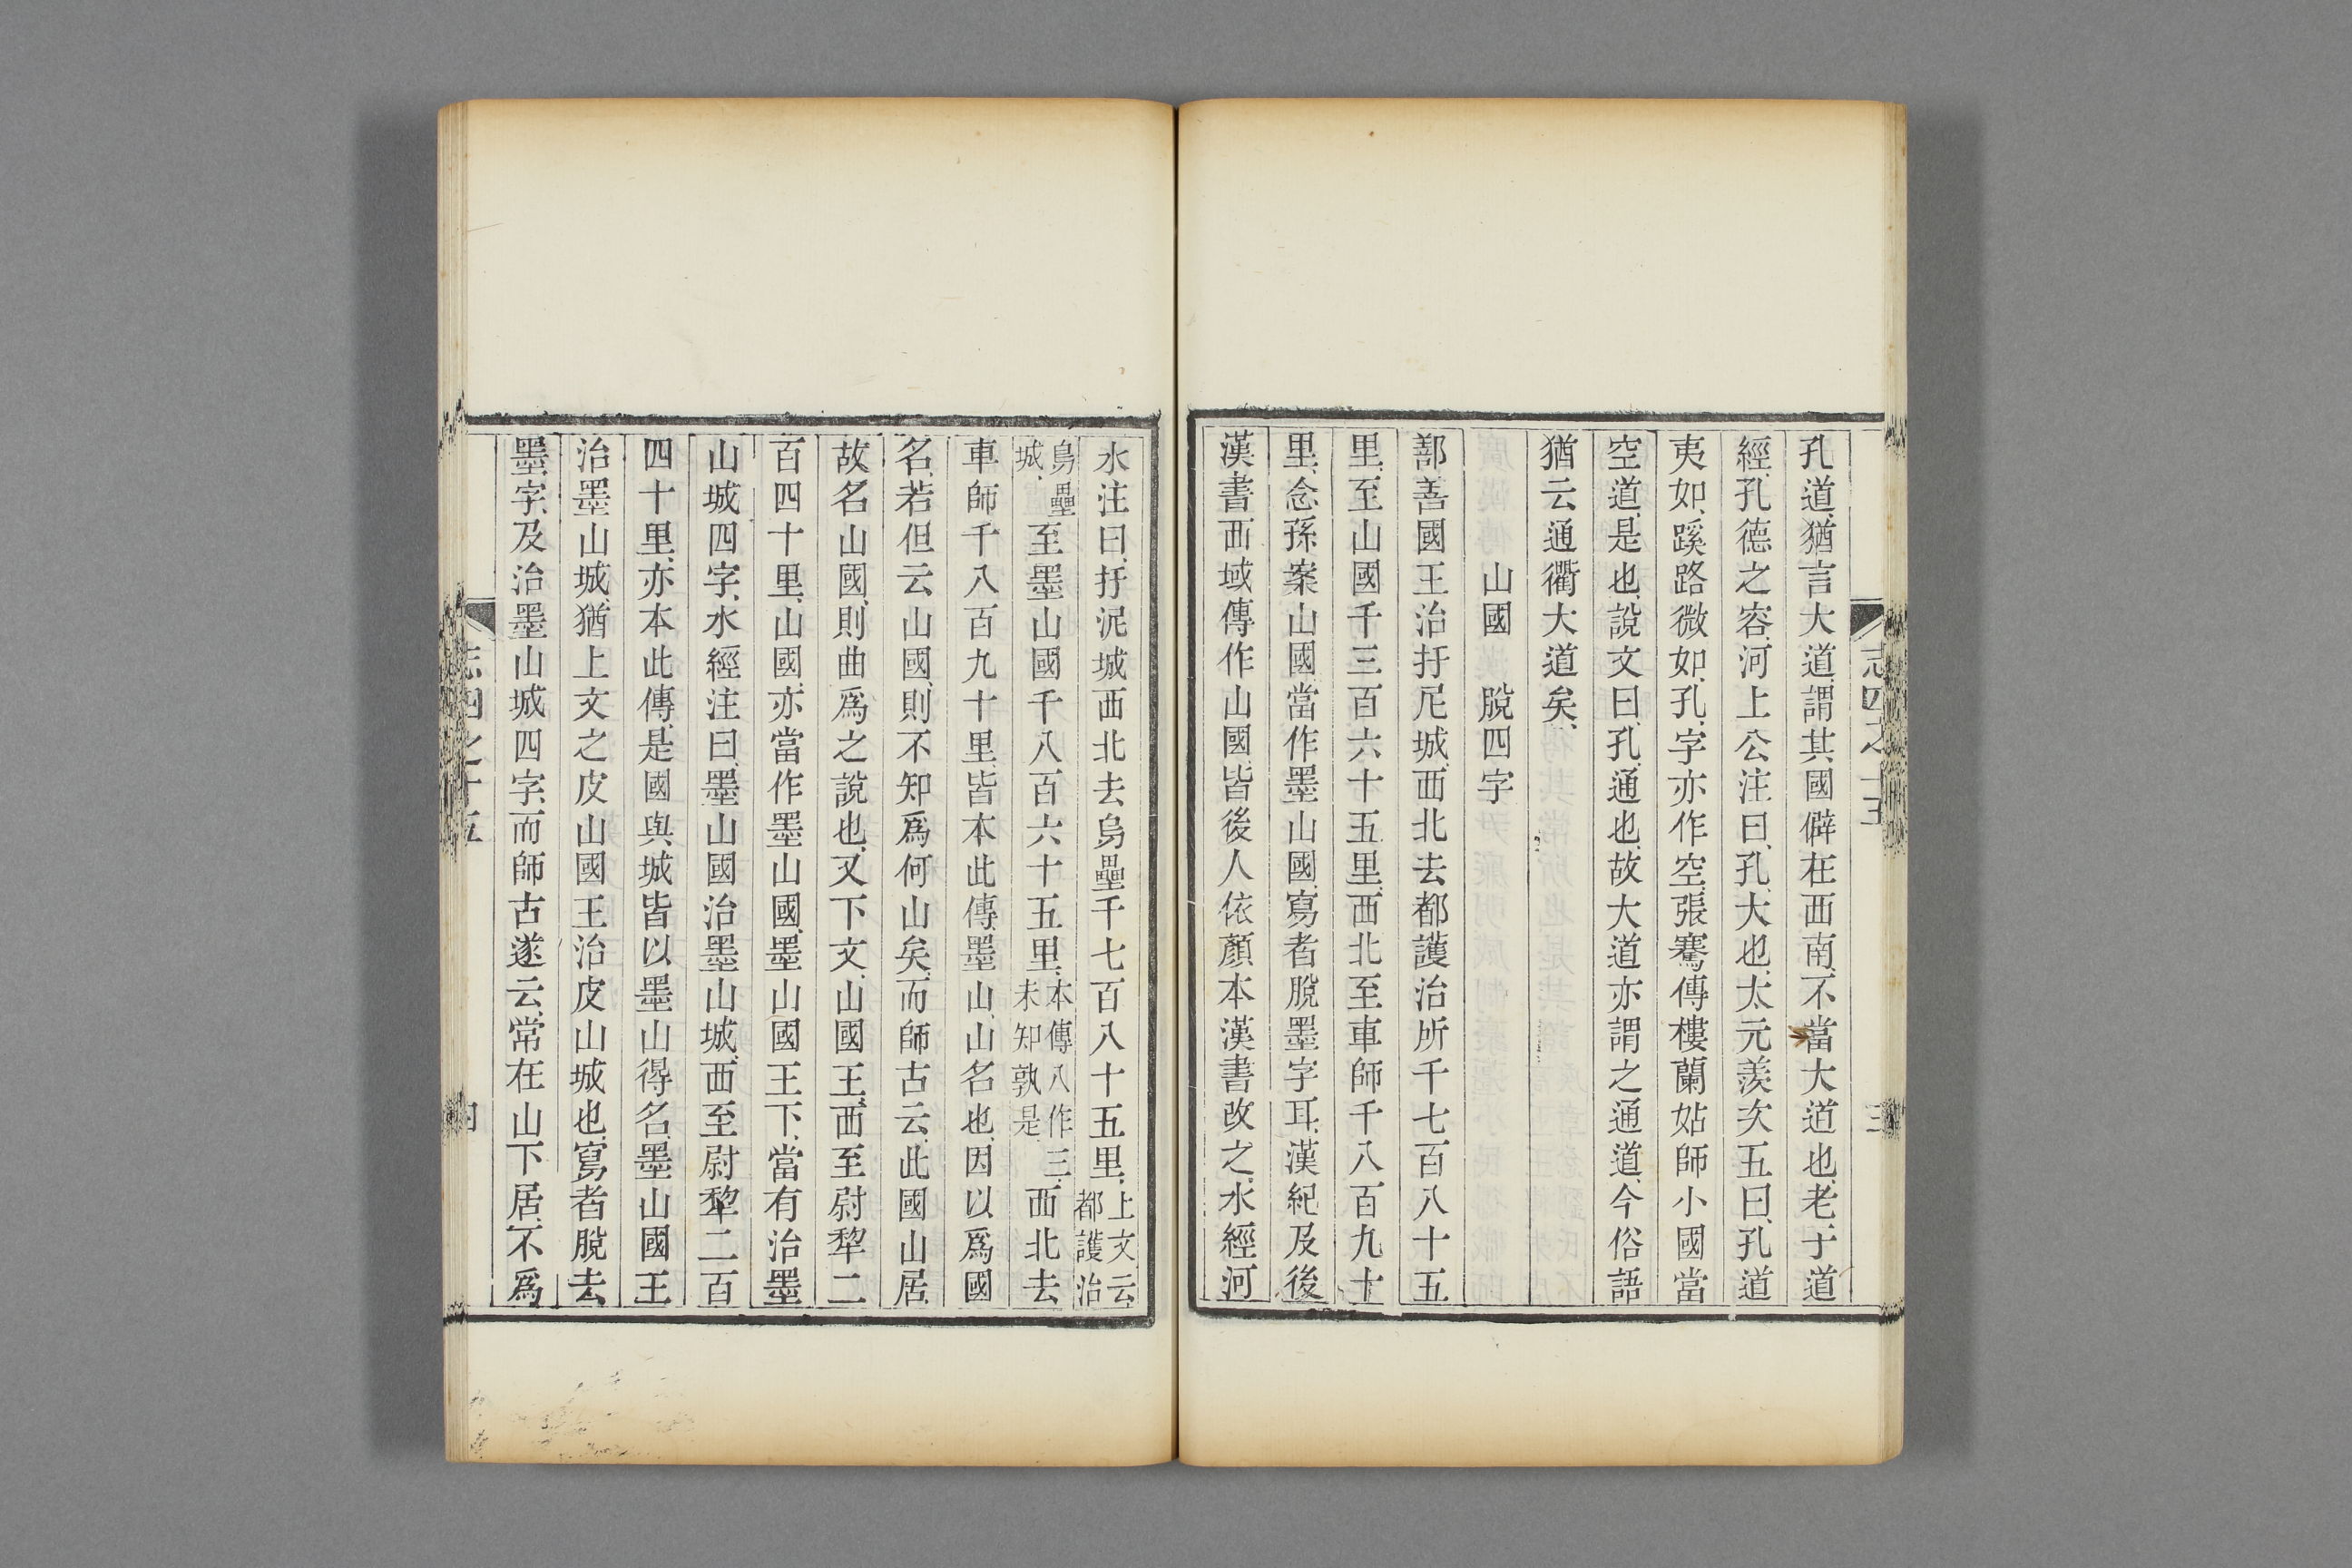 志四之十五
三
孔道、猶言大道、謂其國僻在西南、不當大道也、老子道
經、孔德之容、河上公注曰、孔、大也、太元羨次五曰、孔道
夷如、蹊路微如、孔、字亦作空、張騫傳樓蘭姑師小國當
空道、是也、說文曰、孔、通也、故大道亦謂之通道、今俗語
猶云通衢大道矣、
山國　脫四字
鄯善國王治扜尼城、西北去都護治所千七百八十五
里、至山國千三百六十五里、西北至車師千八百九十
里、念孫案山國、當作墨山國、寫者脫墨字耳、漢紀及後
漢書西域傳作山國、皆後人依顏本漢書改之、水經河
水注曰、扜泥城西北去烏壘千七百八十五里、上文云都護治
烏壘城、至墨山國千八百六十五里、本傳八作三、未知孰是、西北去
車師千八百九十里、皆本此傳、墨山、山名也、因以爲國
名、若但云山國、則不知爲何山矣、而師古云、此國山居、
故名山國、則曲爲之說也、又下文、山國王、西至尉犂二
百四十里、山國、亦當作墨山國、墨山國王下、當有治墨
山城四字、水經注曰、墨山國治墨山城、西至尉犂二百
四十里、亦本此傳、是國與城皆以墨山得名、墨山國王
治墨山城、猶上文之皮山國王治皮山城也、寫者脫去
墨字、及治墨山城四字、而師古遂云、常在山下居、不爲
志四之十五
四